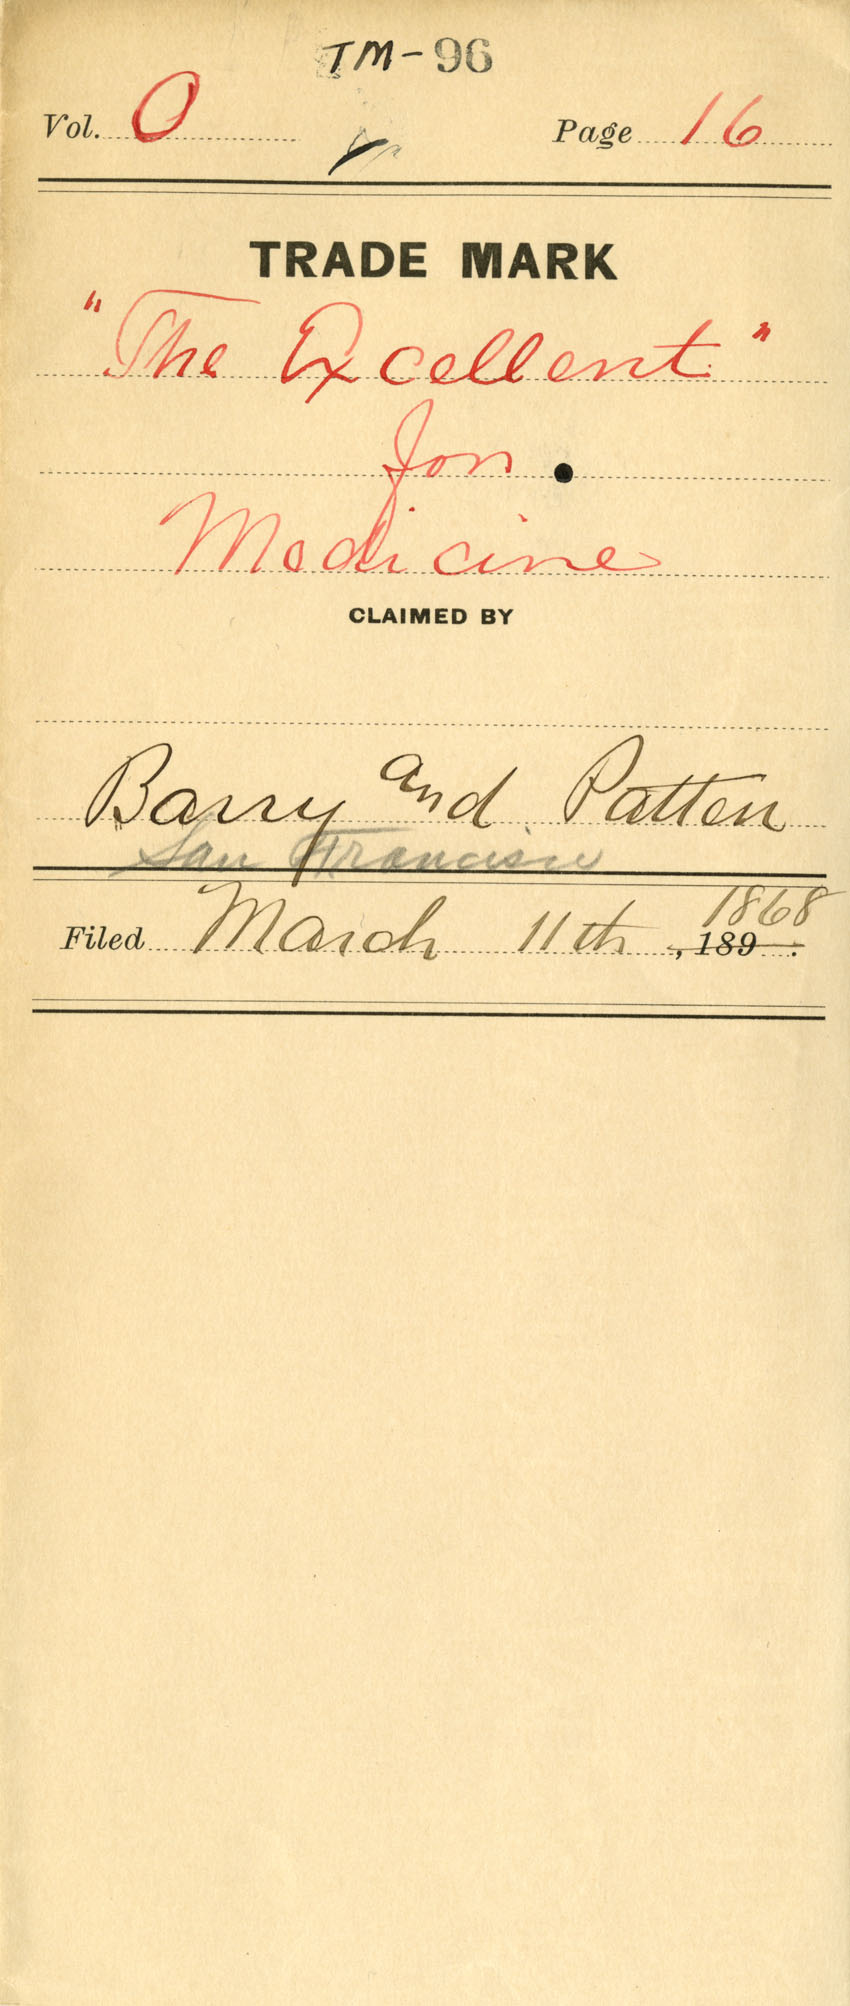 TM-96
Vol. O Page 16
TRADE MARK
"The Excellent"
for
Medicine
CLAIMED BY
Barry and Patten
San Francisco
Filed March 11th, 189 . 1868